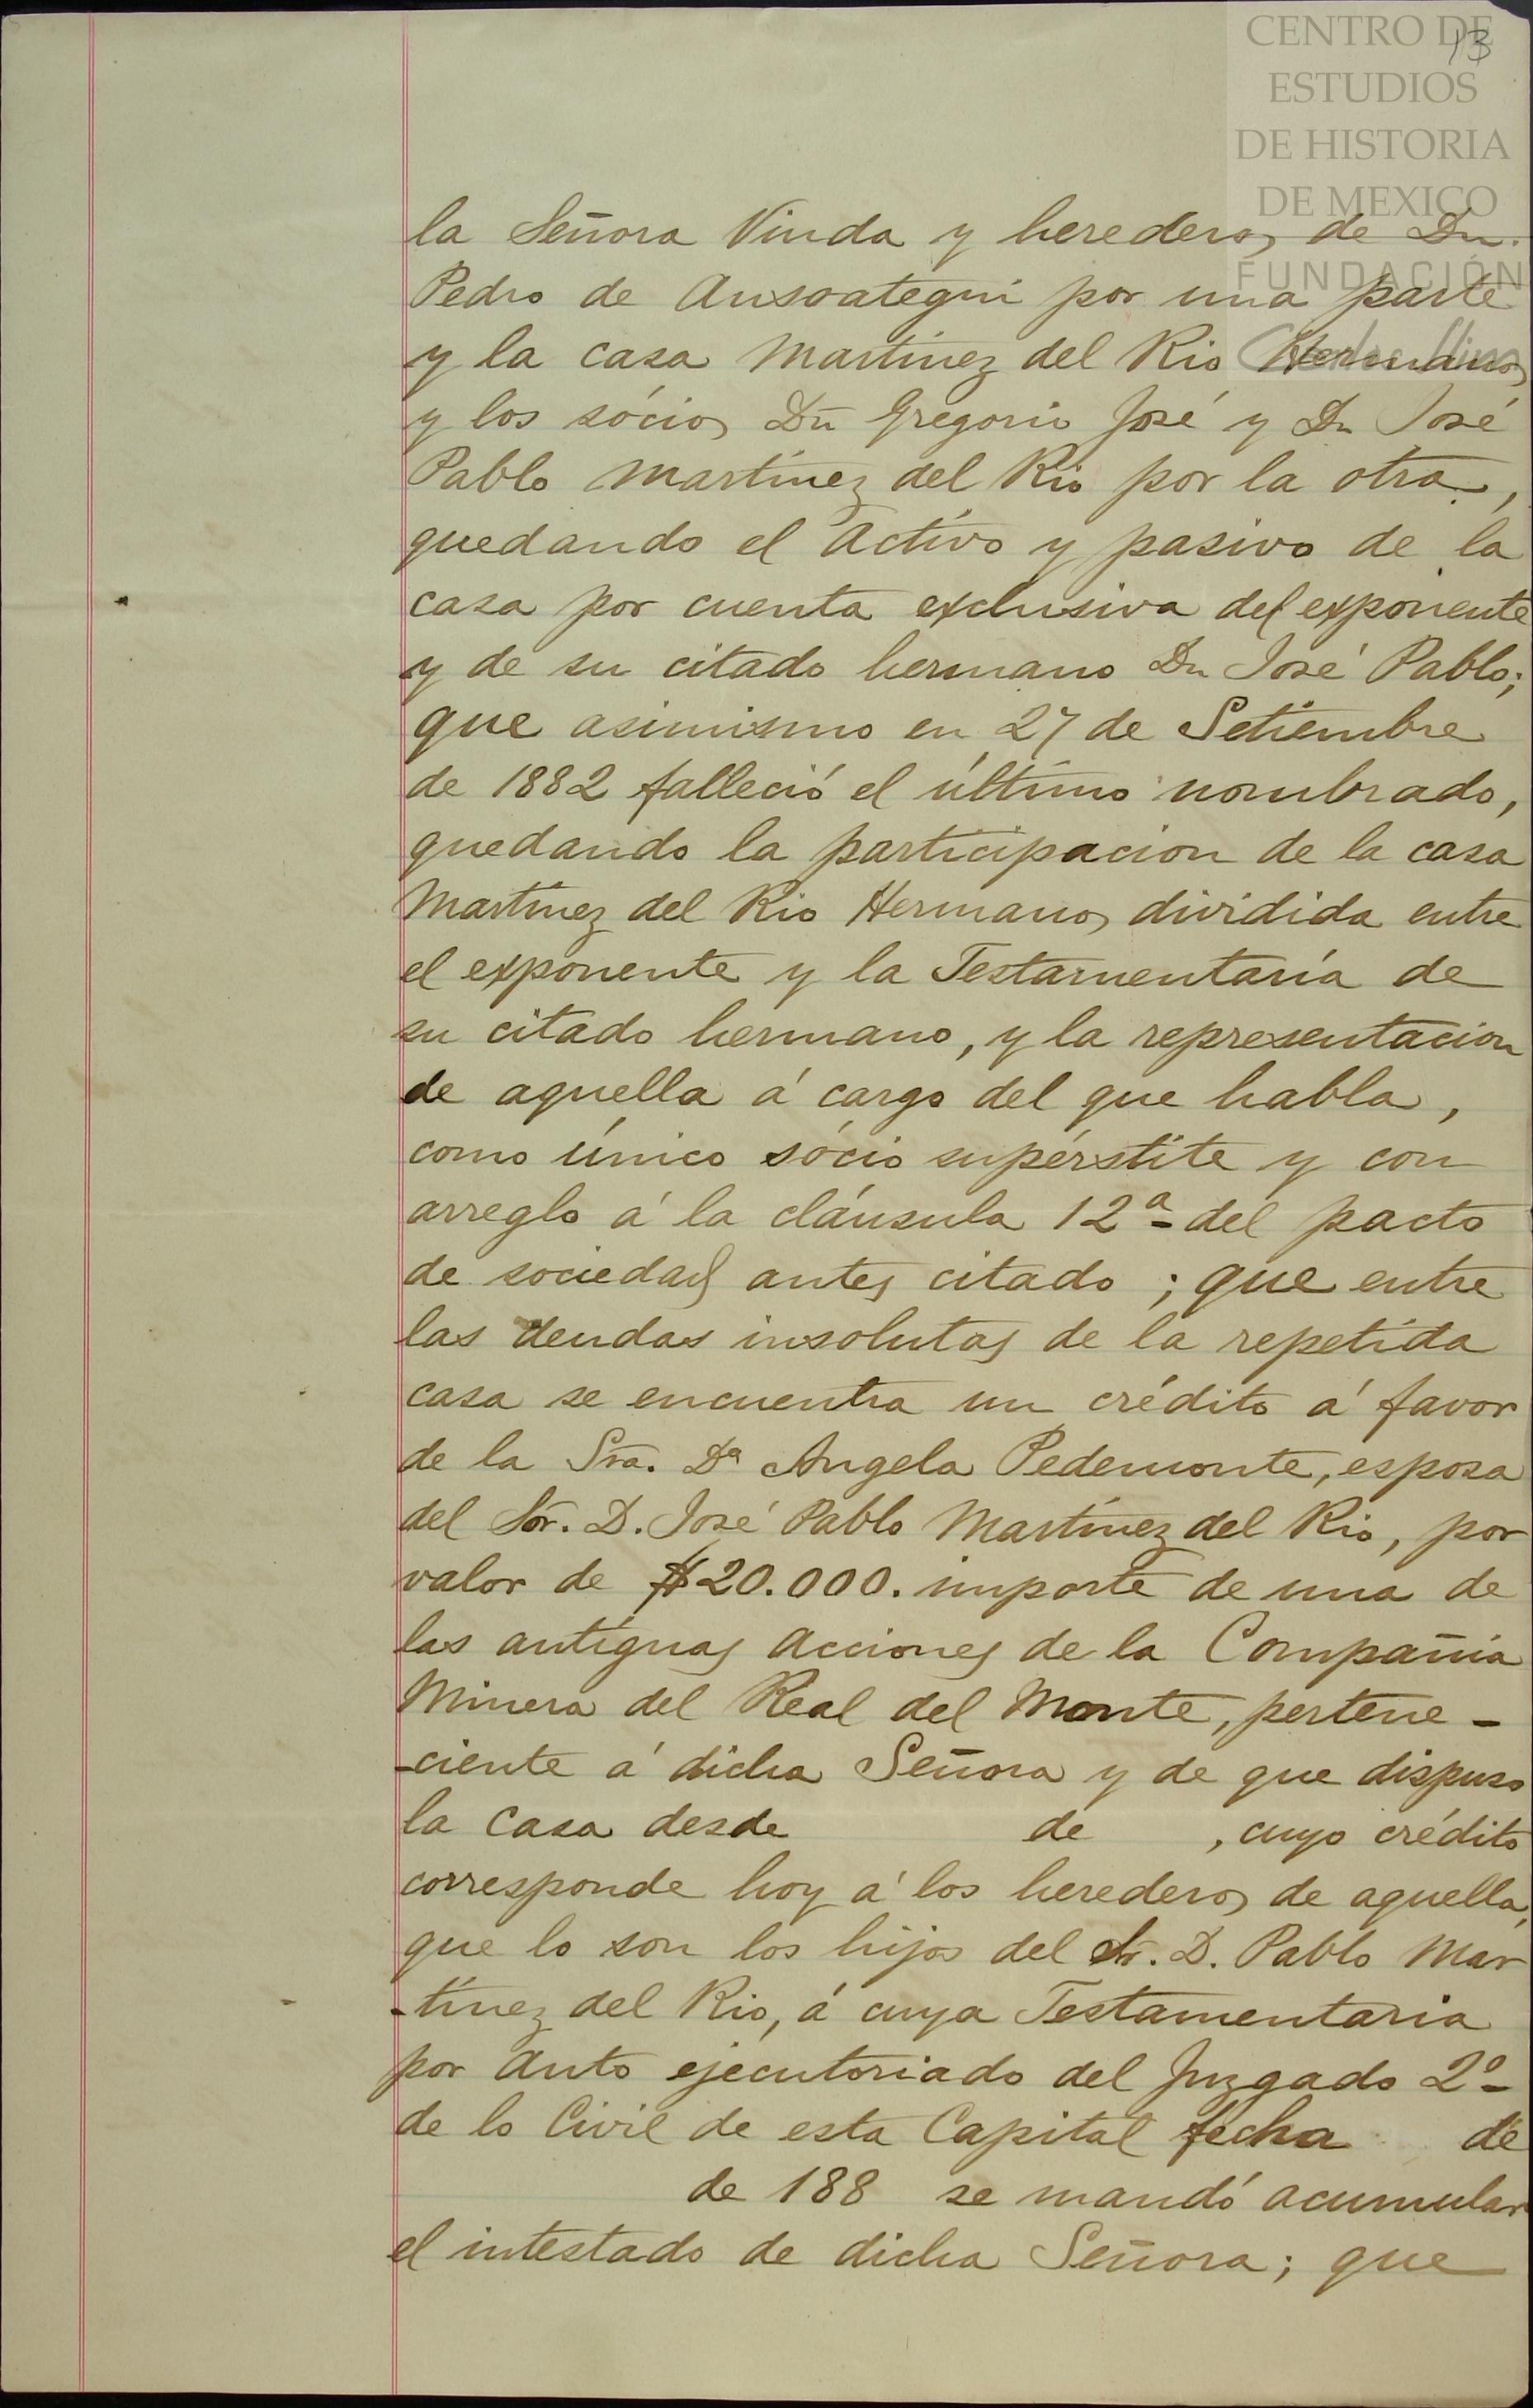 CENTRO DE
ESTUDIOS
DE HISTORIA
DE MEXICO
FUNDACIÓN
13
la Señora Viuda y herederos de Dn.
Pedro de Ansoategui por una parte
y la casa Martínez del Rio Hermanos
y los sócios Dn Gregorio José y Dn José
Pablo Martínez del Rio por la otra,
quedando el Activo y pasivo de la
casa por cuenta exclusiva del exponente
y de su citado hermano Dn José Pablo;
que asimismo en 27 de Setiembre
de 1882 falleció el último nombrado,
quedando la participacion de la casa
Martínez del Rio Hermanos dividida entre
el exponente y la Testamentaría de
su citado hermano, y la representacion
de aquella á cargo del que habla,
como único sócio supérstite y con
arreglo á la cláusula 12ª del pacto
de sociedad antes citado; que entre
las deudas insolutas de la repetida
casa se encuentra un crédito á favor
de la Sra. Dª Angela Pedemonte, esposa
del Sor. D. José Pablo Martínez del Rio, por
valor de $20.000. importe de una de
las antiguas Acciones de la Compañia
Minera del Real del Monte, pertene-
-ciente á dicha Señora y de que dispuso
la Casa desde de , cuyo crédito
corresponde hoy á los herederos de aquella,
que lo son los hijos del Sr. D. Pablo Mar
-tínez del Rio, á cuya Testamentaria
por Auto ejecutoriado del Juzgado 2º
de lo Civil de esta Capital fecha de
de 188 se mandó acumular
el intestado de dicha Señora; que